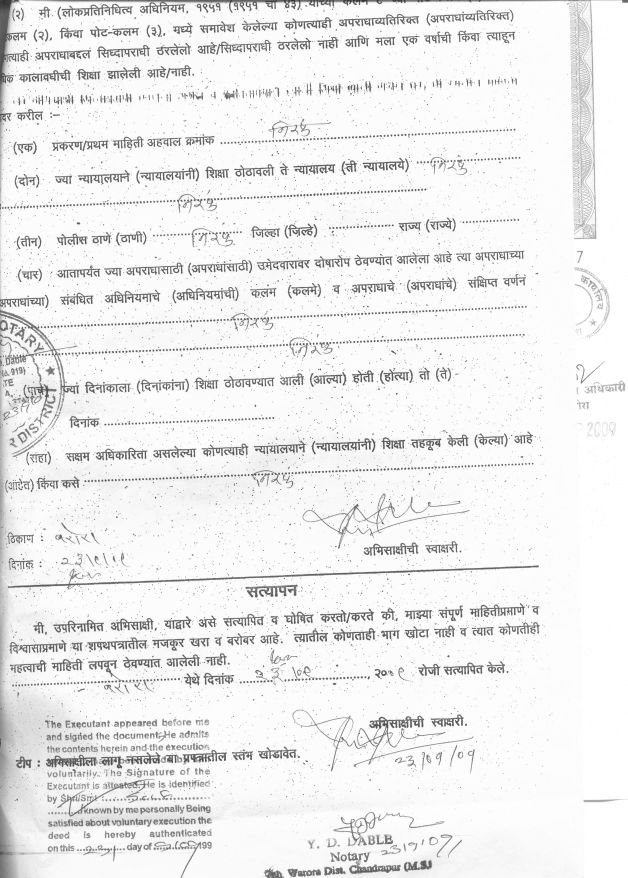 (२) मी (लोकप्रतिनिधित्व अधिनियम, १९५१ (१९५१ चा ४३) याच्या कलम
कलम (२), किंवा पोट-कलम (३), मध्ये समावेश केलेल्या कोणत्याही अपराधाव्यतिरिक्त (अपराधांव्यतिरिक्त)
त्याही अपराधाबद्दल सिध्दापराधी ठरलेलो आहे/सिध्दापराधी ठरलेलो नाही आणि मला एक वर्षाची किंवा त्याहून
धिक कालावधीची शिक्षा झालेली आहे/नाही.
दर करील :-
(एक) प्रकरण/प्रथम माहिती अहवाल क्रमांक निरंक
(दोन) ज्या न्यायालयाने (न्यायालयांनी) शिक्षा ठोठावली ते न्यायालय (ती न्यायालये) निरंक
निरंक
(तीन) पोलीस ठाणे (ठाणी) निरंक जिल्हा (जिल्हे) राज्य (राज्ये)
(चार) आतापर्यत ज्या अपराधासाठी (अपराधांसाठी) उमेदवारावर दोषारोप ठेवण्यात आलेला आहे त्या अपराधाच्या
अपराधांच्या) संबंधित अधिनियमाचे (अधिनियमांची) कलम (कलमे) व अपराधाचे (अपराधांचे) संक्षिप्त वर्णन
निरंक
निरंक
NOTARY
DISTRICT
(पाच) ज्या दिनांकाला (दिनांकांना) शिक्षा ठोठावण्यात आली (आल्या) होती (होत्या) तो (ते)
दिनांक
(सहा) सक्षम अधिकारिता असलेल्या कोणत्याही न्यायालयाने (न्यायालयांनी) शिक्षा तहकूब केली (केल्या) आहे
(आहेत) किंवा कसे निरंक
ठिकाण : वरोरा
दिनांक : २३/९/०९
अभिसाक्षीची स्वाक्षरी.
सत्यापन
मी, उपरिनामित अभिसाक्षी, याद्वारे असे सत्यापित व घोषित करतो/करते की, माझ्या संपूर्ण माहितीप्रमाणे व
विश्वासाप्रमाणे या शपथपत्रातील मजकूर खरा व बरोबर आहे. त्यातील कोणताही भाग खोटा नाही व त्यात कोणतीही
महत्वाची माहिती लपवून ठेवण्यात आलेली नाही.
वरोरा येथे दिनांक २३/०९, २००९ रोजी सत्यापित केले.
अभिसाक्षीची स्वाक्षरी.
23/09/09
टीप : अभिसाक्षीला लागू नसलेले या प्रपत्रातील स्तंभ खोडावेत.
The Executant appeared before me
and signed the document, He admits
the contents herein and the execution
voluntarily. The Signature of the
Executant is attested, He is identified
by Shri/Smt
known by me personally Being
satisfied about voluntary execution the
deed is hereby authenticated
on this day of 199
Y. D. DABLE
Notary 23/9/09
Tah. Warora Dist. Chandrapur (M.S.)
7
कार्यालय
अधिकारी
2009